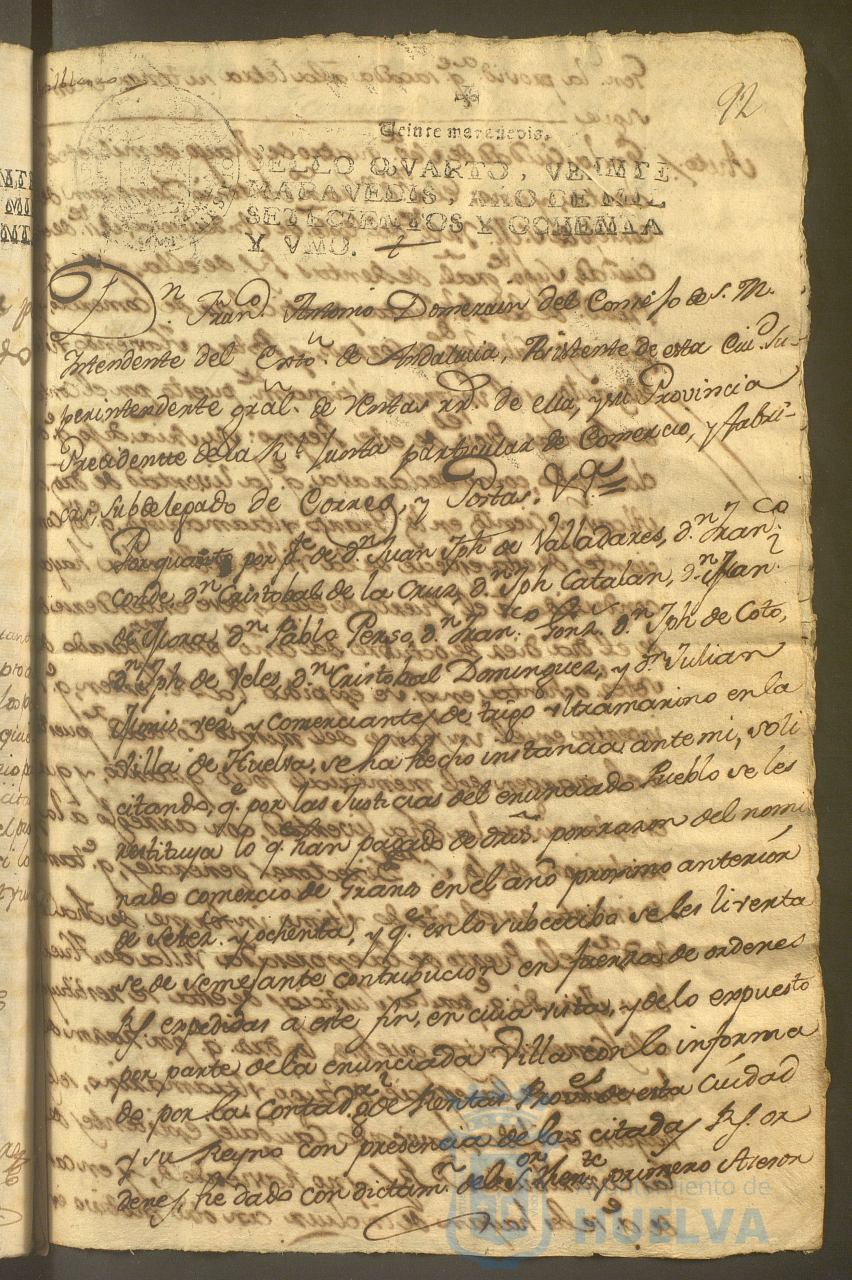 92
Veinte maravedis.
SELLO QVARTO, VEINTE
MARAVEDIS, AÑO DE MIL
SETECIENTOS Y OCHENTA
Y VNO.
Dn. Franco. Antonio Domezain del Consejo de S. M.
Intendente del Exto. de Andalucia, Asistente de esta Ciud. Su-
perintendente gral. de Rentas rs. de ella, y su Provincia
Precidente de la Rl. Junta particular de Comercio, y fabri-
cas, subdelegado de Correos, y Postas. Va.
Por quanto por pte. de dn. Juan Jph de Valladares, dn. Franco.
Conde dn. Cristobal de la Cruz, dn. Jph. Catalan, dn. Juan
de Mora, dn. Pablo Perso, dn. Franco. dn. Jph de Coto,
dn. Jph de Veles, dn. Cristobal Dominguez, y dn. Julian
vezs. y comerciantes de trigo ultramarino en la
Villa de Huelva, se ha hecho instancia ante mi, soli
citando, qe. por las Justicias del enunciado Pueblo se les
restituya lo q. han pagado de dros. por razon del nomi
nado comercio de Granos en el año proximo anterior
de setezs. y ochenta, y qe. en lo subcecibo se les liverta
se de semejante contribucion en fuerza de ordenes
Rs. expedidas a este fin, en cuia vista, y de lo expuesto
por parte de la enunciada Villa con lo informa
do por la Contada. pral. de Rentas Proves. de esta Ciudad
y su Reyno con precencia de las citadas Rs. or
denes, he dado con dictamn. del Sor. thente. primero Asesor
Ayuntamiento de
HUELVA